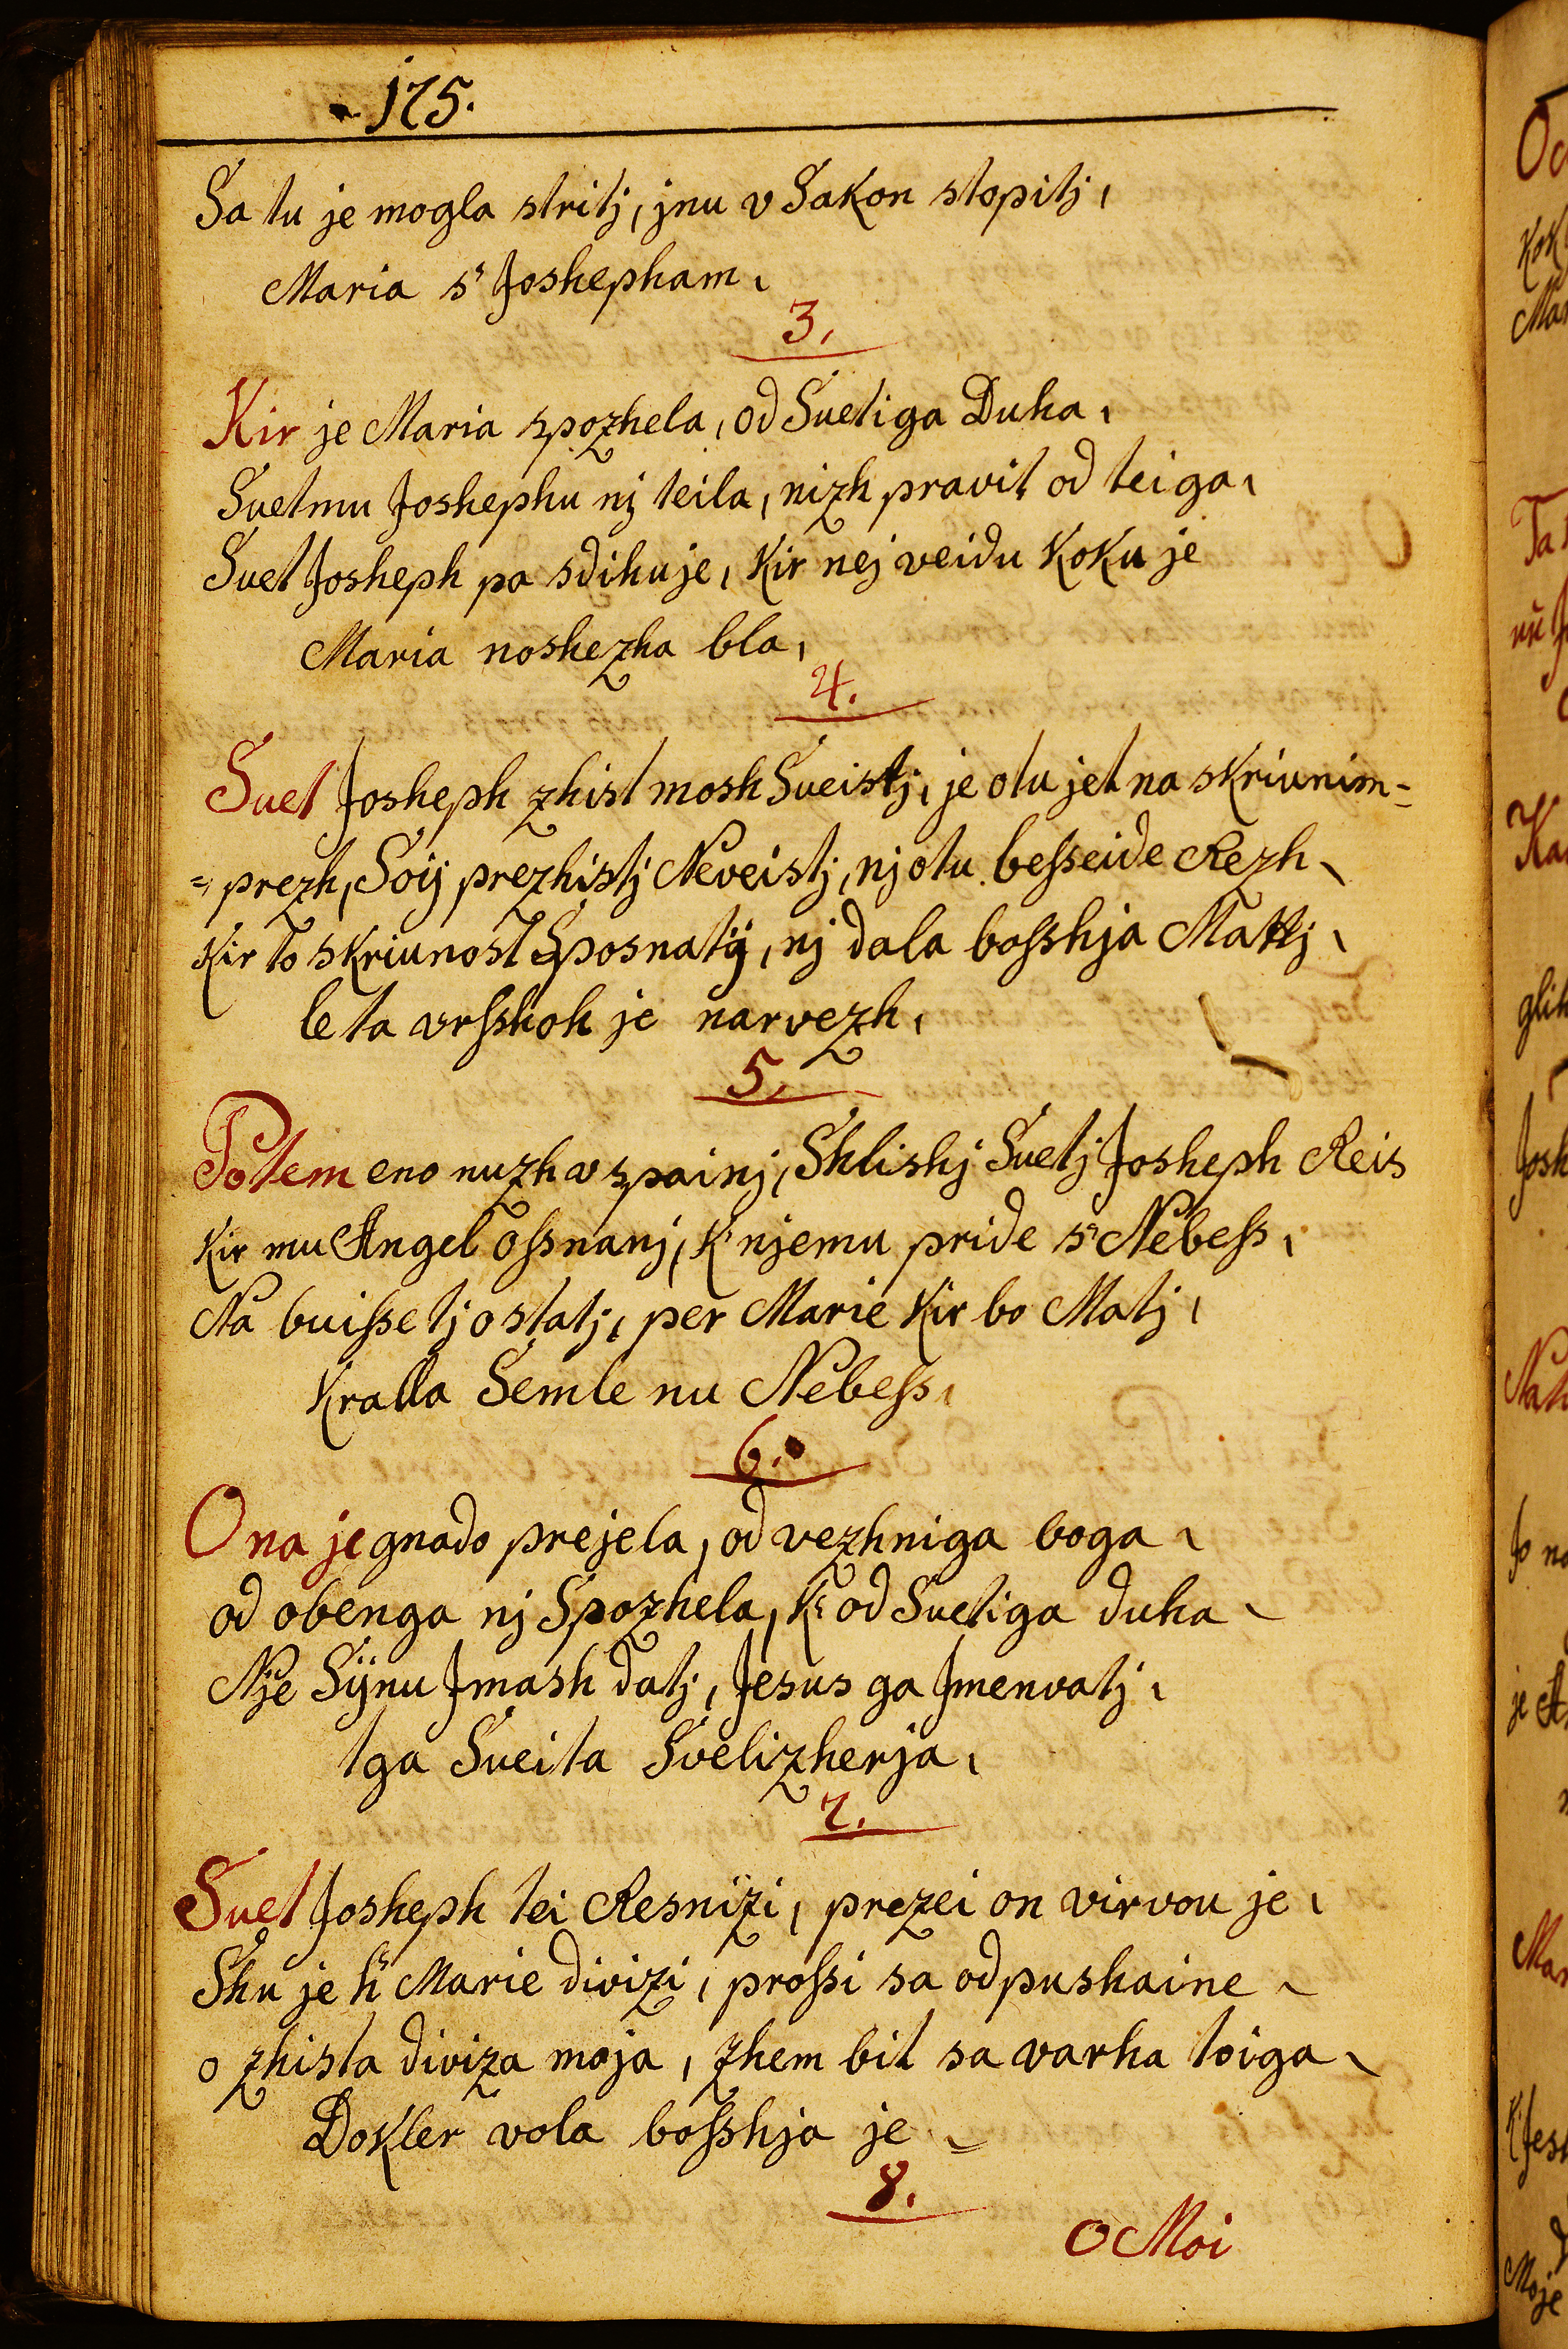 175.
Sa tu je mogla stritj, jnu v Sakon stopitj,
Maria s' Joshepham,
3,
Kir je Maria spozhela, od Suetiga Duha,
Suetmu Joshephu nj teila, nizh pravit od teiga,
Suet Josheph pa sdihuje, Kir nej veidu KoKu je
Maria noshezha bla,
4.
Suet Josheph zhist mosh Sueistj, je otu jet na sKriunim=
=prezh, Soÿ prezhistj Neveistj, nj otu besseide Rezh,
Kir to sKriunost Sposnatÿ, nj dala bosshja Mattj,
le ta vrsshoh je narvezh,
5,
Potem eno nuzh v spainj, Shlishj Suetj Josheph Reis
Kir mu Angel ossnanj, K' njemu pride s' Nebess,
Na buisse tj ostatj, per Marie Kir bo Matj,
Kralla Semle nu Nebess,
6.
Ona je gnado prejela, od vezhniga boga,
od obenga nj Spozhela, K' od Suetiga duha,
Nje Sÿnu Jmash datj, Jesus ga Jmenvatj,
tga Sueita Svelizherja,
7.
Suet Josheph tei Resnizi, prezei on virvou je,
Shu je h' Marie divizi, prossi sa odpushaine,
o zhista diviza moja, zhem bit sa varha toiga,
DoKler vola bosshja je,
8.
O Moi